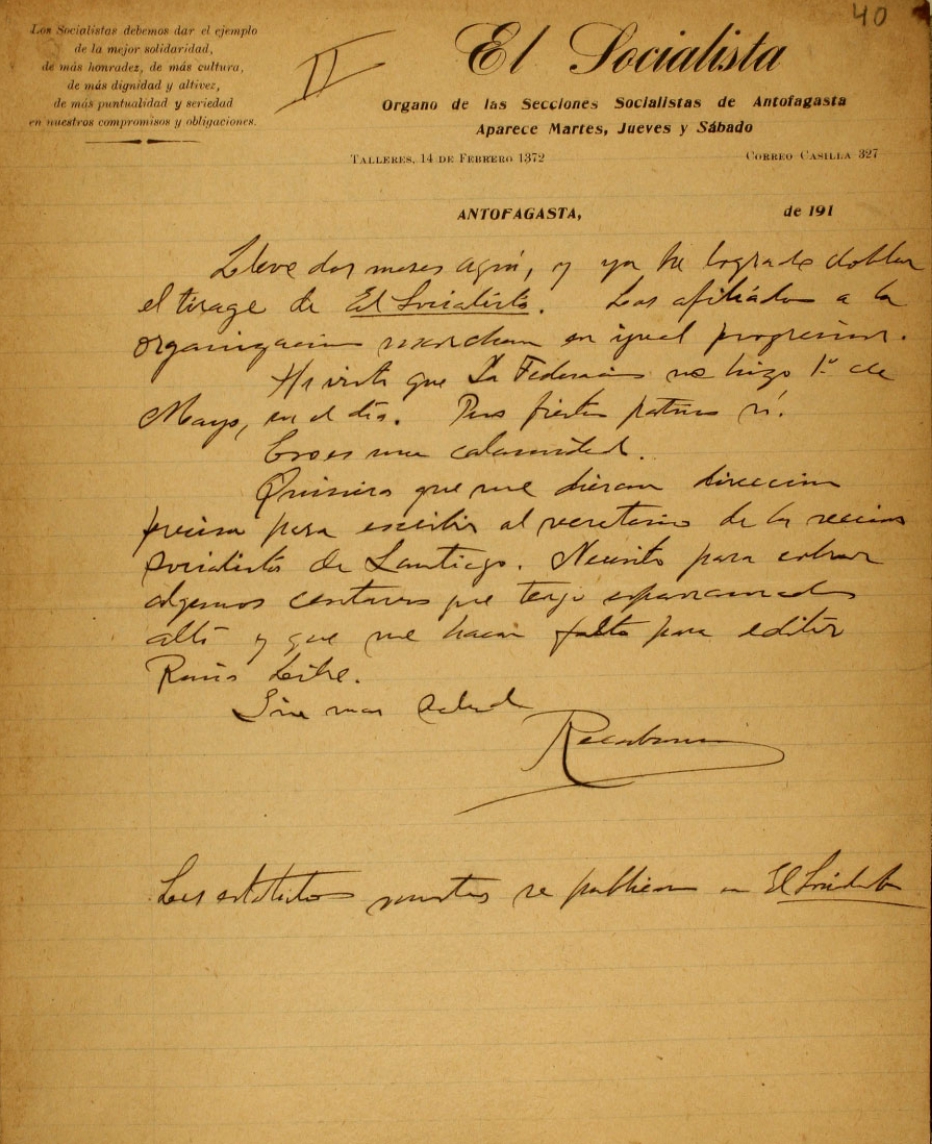 40
Los Socialistas debemos dar el ejemplo
de la mejor solidaridad,
de más honradez, de más cultura,
de más dignidad y altivez,
de más puntualidad y seriedad
en nuestros compromisos y obligaciones.
II
El Socialista
Organo de las Secciones Socialistas de Antofagasta
Aparece Martes, Jueves y Sábado
Talleres, 14 de Febrero 1372
Correo Casilla 327
ANTOFAGASTA, de 191
Llevo dos meses aquí, y ya he logrado doblar
el tirage de El Socialista. Los afiliados a la
organizacion marchan en igual progresion.
He visto que La Federacion no hizo 1º de
Mayo, en el dia. Pero fiestas patrias si.
Eso es una calamidad.
Quisiera que me dieran direccion
precisa para escribir al secretario de la seccion
socialista de Santiago. Necesito para cobrar
algunos centavos que tengo esparramados
allá y que me hacen falta para editar
Sin mas salud
Recabarren
Los estatutos nuestros se publican en El Socialista